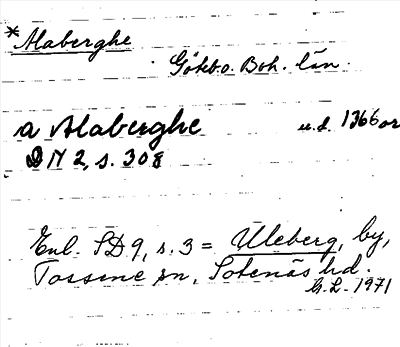 *Alaberghe
Götebo. Boh. län.
a Alaberghe u.d. 1366 or
DN 2, s. 308
Enl. SD 9, s. 3 = Uleberg, by,
Tossene sn, Sotenäs hd.
G.L. 1971